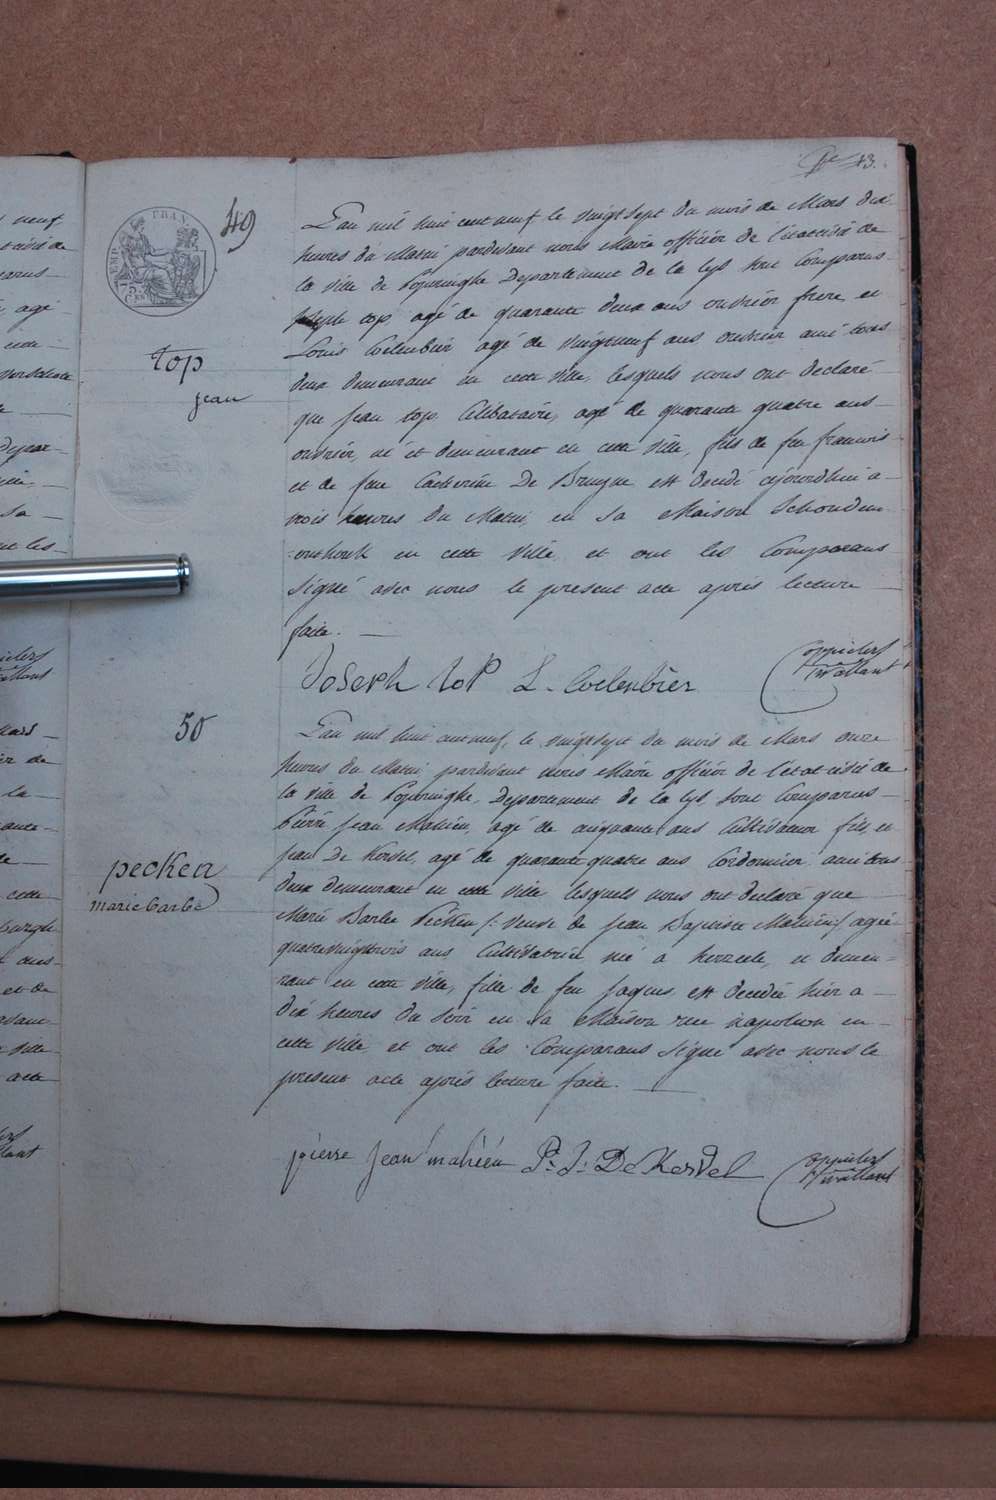 13.
49
L'an mil huit cent neuf le vingtsept du mois de Mars dix
heures du Matin pardevant nous Maire officier de l'etat civil de
la ville de Poperinghe Departement de la Lys sont Comparus
joseph top, agé de quarante deux ans ouvrier frere et
Louis Coelenbier agé de vingtneuf ans ouvrier ami tous
deux demeurant en cette ville, lesquels nous ont declaré
que jean top, Celibataire, agé de quarante quatre ans
ouvrier, né et demeurant en cette ville, fils de feu francois
et de feue Catherine De Bruyne est decedé ajourdhui a
trois heures du Matin, en sa Maison Schouden
-enthouk en cette ville, et ont les Comparans
signé avec nous le present acte après lecture
faite.
top
jean
Joseph toP L. Coelenbier
50
L'an mil huit cent neuf, le vingtsept du mois de Mars onze
heures du Matin pardevant nous Maire officier de l'état civil de
la ville de Poperinghe, Departement de la Lys, sont Comparus
Pierre jean Mahieu, agé de cinquante ans Cultivateur fils, et
jean De Kersel, agé de quarante quatre ans Cordonnier ami tous
deux demeurant en cette ville lesquels nous ont declaré que
Marie Barbe Pecken /: veuve de jean Baptiste Mahieu :/ agée
quatrevingttrois ans Cultivatrice, née a herzeele, et demeu-
rant en cette ville, fille de feu jaques est decedée hier a
dix heures du soir en sa Maison rue napoleon en
cette ville, et ont les Comparans signé avec nous le
present acte après lecture faite.
pecken
marie barbe
pierre jean mahieu P: J: De Kersel